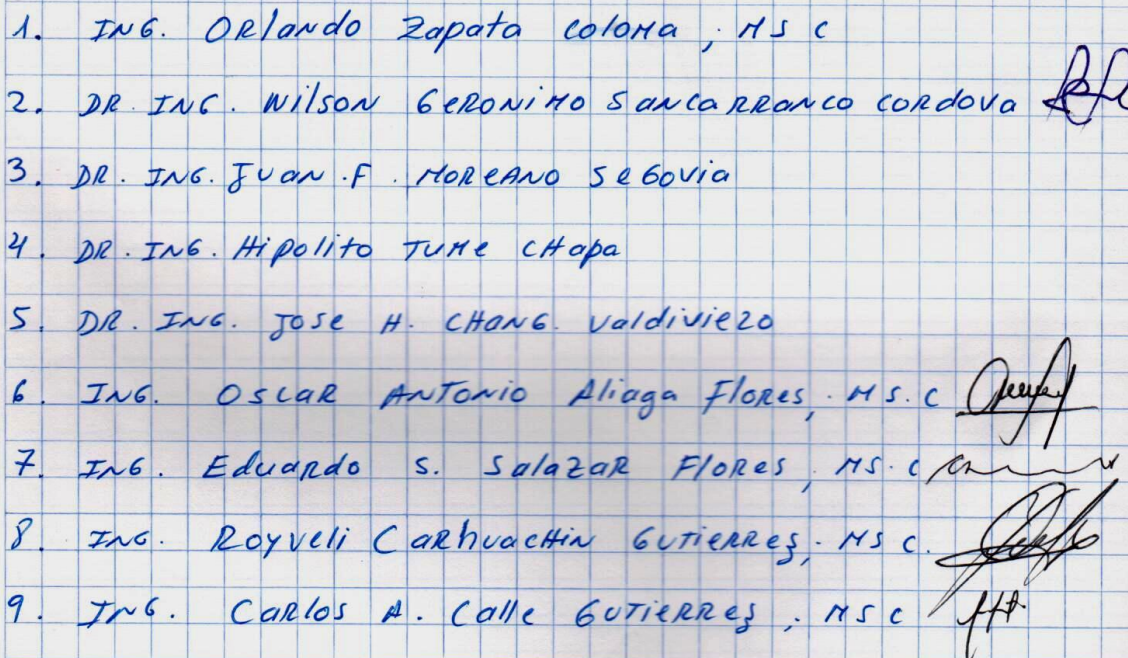 1. ING. ORlando Zapata coloma, MS C
2. DR. ING. Wilson GERONIMO SANCARRANCO CORdova
3. DR. ING. JUAN .F. MOREANO SEGOVIA
4. DR. ING. Hipolito TUME CHapa
5. DR. ING. JOSE H. CHANG. Valdiviezo
6. ING. OSCAR ANTONIO Aliaga Flores, MS.C
7. ING. Eduardo S. SalaZAR FLORES, MS.C
8. ING. Royveli CARhuacHin GUTIERREZ, MS C.
9. ING. CARlos A. Calle GUTIERREZ, MSC